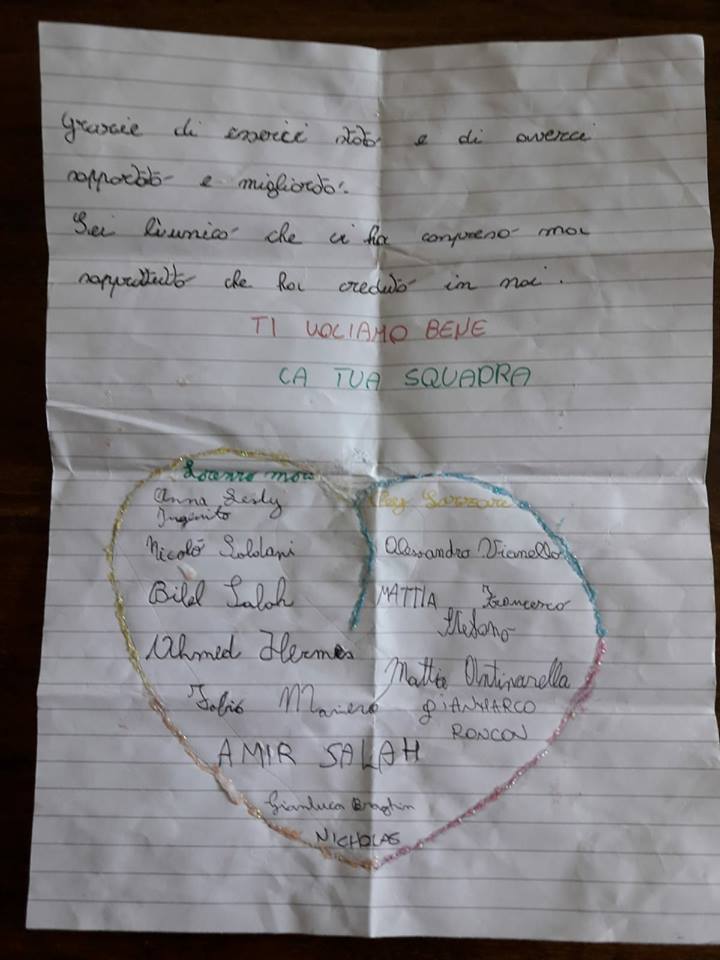 Grazie di esserci stato e di averci
sopportato e migliorato.
Sei l'unico che ci ha compreso ma
soprattutto che ha creduto in noi.
TI VOGLIAMO BENE
LA TUA SQUADRA
Lorenzo
Anna Lesly
Ingenito
Nicolò Soldani
Alessandro Vianello
Bilel Salah
MATTIA Francesco
Stefano
Ahmed Hermes
Mattia Antinarella
Fabio Maniero
GIANMARCO
RONCON
AMIR SALAH
Gianluca Braghin
NICHOLAS